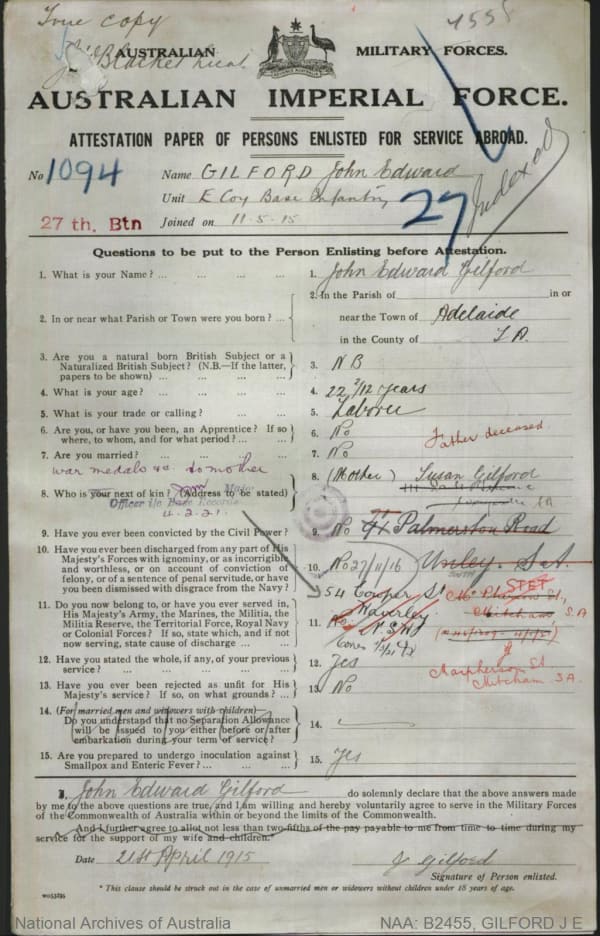 True copy
Blacket Lieut
4558
AUSTRALIAN MILITARY FORCES.
AUSTRALIAN IMPERIAL FORCE.
ATTESTATION PAPER OF PERSONS ENLISTED FOR SERVICE ABROAD.
No 1094 Name GILFORD John Edward
Unit E Coy Base Infantry
27
Indexed
27 th. Btn Joined on 11-5-15
Questions to be put to the Person Enlisting before Attestation.
1. What is your Name? ... 1. John Edward Gilford
2. In or near what Parish or Town were you born? ... 2. In the Parish of in or
near the Town of Adelaide
in the County of S A.
3. Are you a natural born British Subject or a
Naturalized British Subject? (N.B.—If the latter,
papers to be shown) ... 3. N B
4. What is your age? ... 4. 22 2/12 years
5. What is your trade or calling? ... 5. Laborer
6. Are you, or have you been, an Apprentice? If so
where, to whom, and for what period? ... 6. No
Father deceased
7. Are you married? ... 7. No
war medals &c to mother
8. Who is your next of kin? (Address to be stated) 8. (Mother) Susan Gilford
Major
Officer i/c Base Records
4.2.21.
9. Have you ever been convicted by the Civil Power? 9. No
Palmerston Road
Unley S A
10. Have you ever been discharged from any part of His
Majesty's Forces with ignominy, or as incorrigible
and worthless, or on account of conviction of
felony, or of a sentence of penal servitude, or have
you been dismissed with disgrace from the Navy? 10. No
27/11/16
54 Cowper St
Waverley
N.S.W
STET
Mitcham S.A
11. Do you now belong to, or have you ever served in,
His Majesty's Army, the Marines, the Militia, the
Militia Reserve, the Territorial Force, Royal Navy
or Colonial Forces? If so, state which, and if not
now serving, state cause of discharge ... 11. No
12. Have you stated the whole, if any, of your previous
service? ... 12. Yes
Macpherson St
Mitcham S.A.
13. Have you ever been rejected as unfit for His
Majesty's service? If so, on what grounds? ... 13. No
14. (For married men and widowers with children)
Do you understand that no Separation Allowance
will be issued to you either before or after
embarkation during your term of service? ... 14.
15. Are you prepared to undergo inoculation against
Smallpox and Enteric Fever? ... 15. Yes
I, John Edward Gilford do solemnly declare that the above answers made
by me to the above questions are true, and I am willing and hereby voluntarily agree to serve in the Military Forces
of the Commonwealth of Australia within or beyond the limits of the Commonwealth.
And I further agree to allot not less than two-fifths of the pay payable to me from time to time during my
service for the support of my wife and children.*
Date 21st April 1915 J Gilford
Signature of Person enlisted.
* This clause should be struck out in the case of unmarried men or widowers without children under 18 years of age.
National Archives of Australia NAA: B2455, GILFORD J E